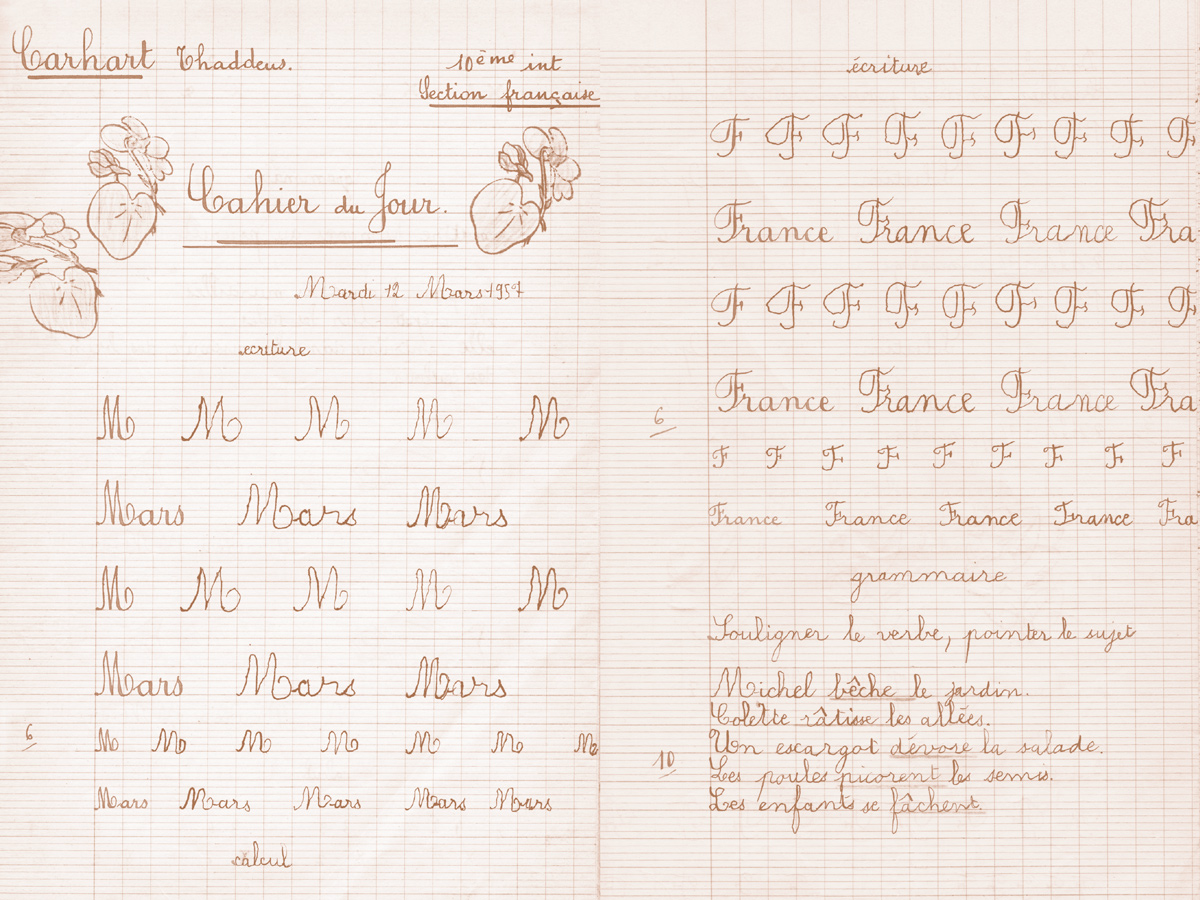 Carhart Thaddeus.
10ème int
Section française
Cahier du Jour.
Mardi 12 Mars 1957
ecriture
M M M M M
Mars Mars Mars
M M M M M
Mars Mars Mars
6
M M M M M M M
Mars Mars Mars Mars Mars
calcul
écriture
F F F F F F F F F
France France France Fra
F F F F F F F F F
France France France Fra
6
F F F F F F F F F
France France France France Fra
grammaire
Souligner le verbe, pointer le sujet
Michel bêche le jardin.
Colette râtisse les allées.
Un escargot dévore la salade.
10
Les poules picorent les semis.
Les enfants se fâchent.